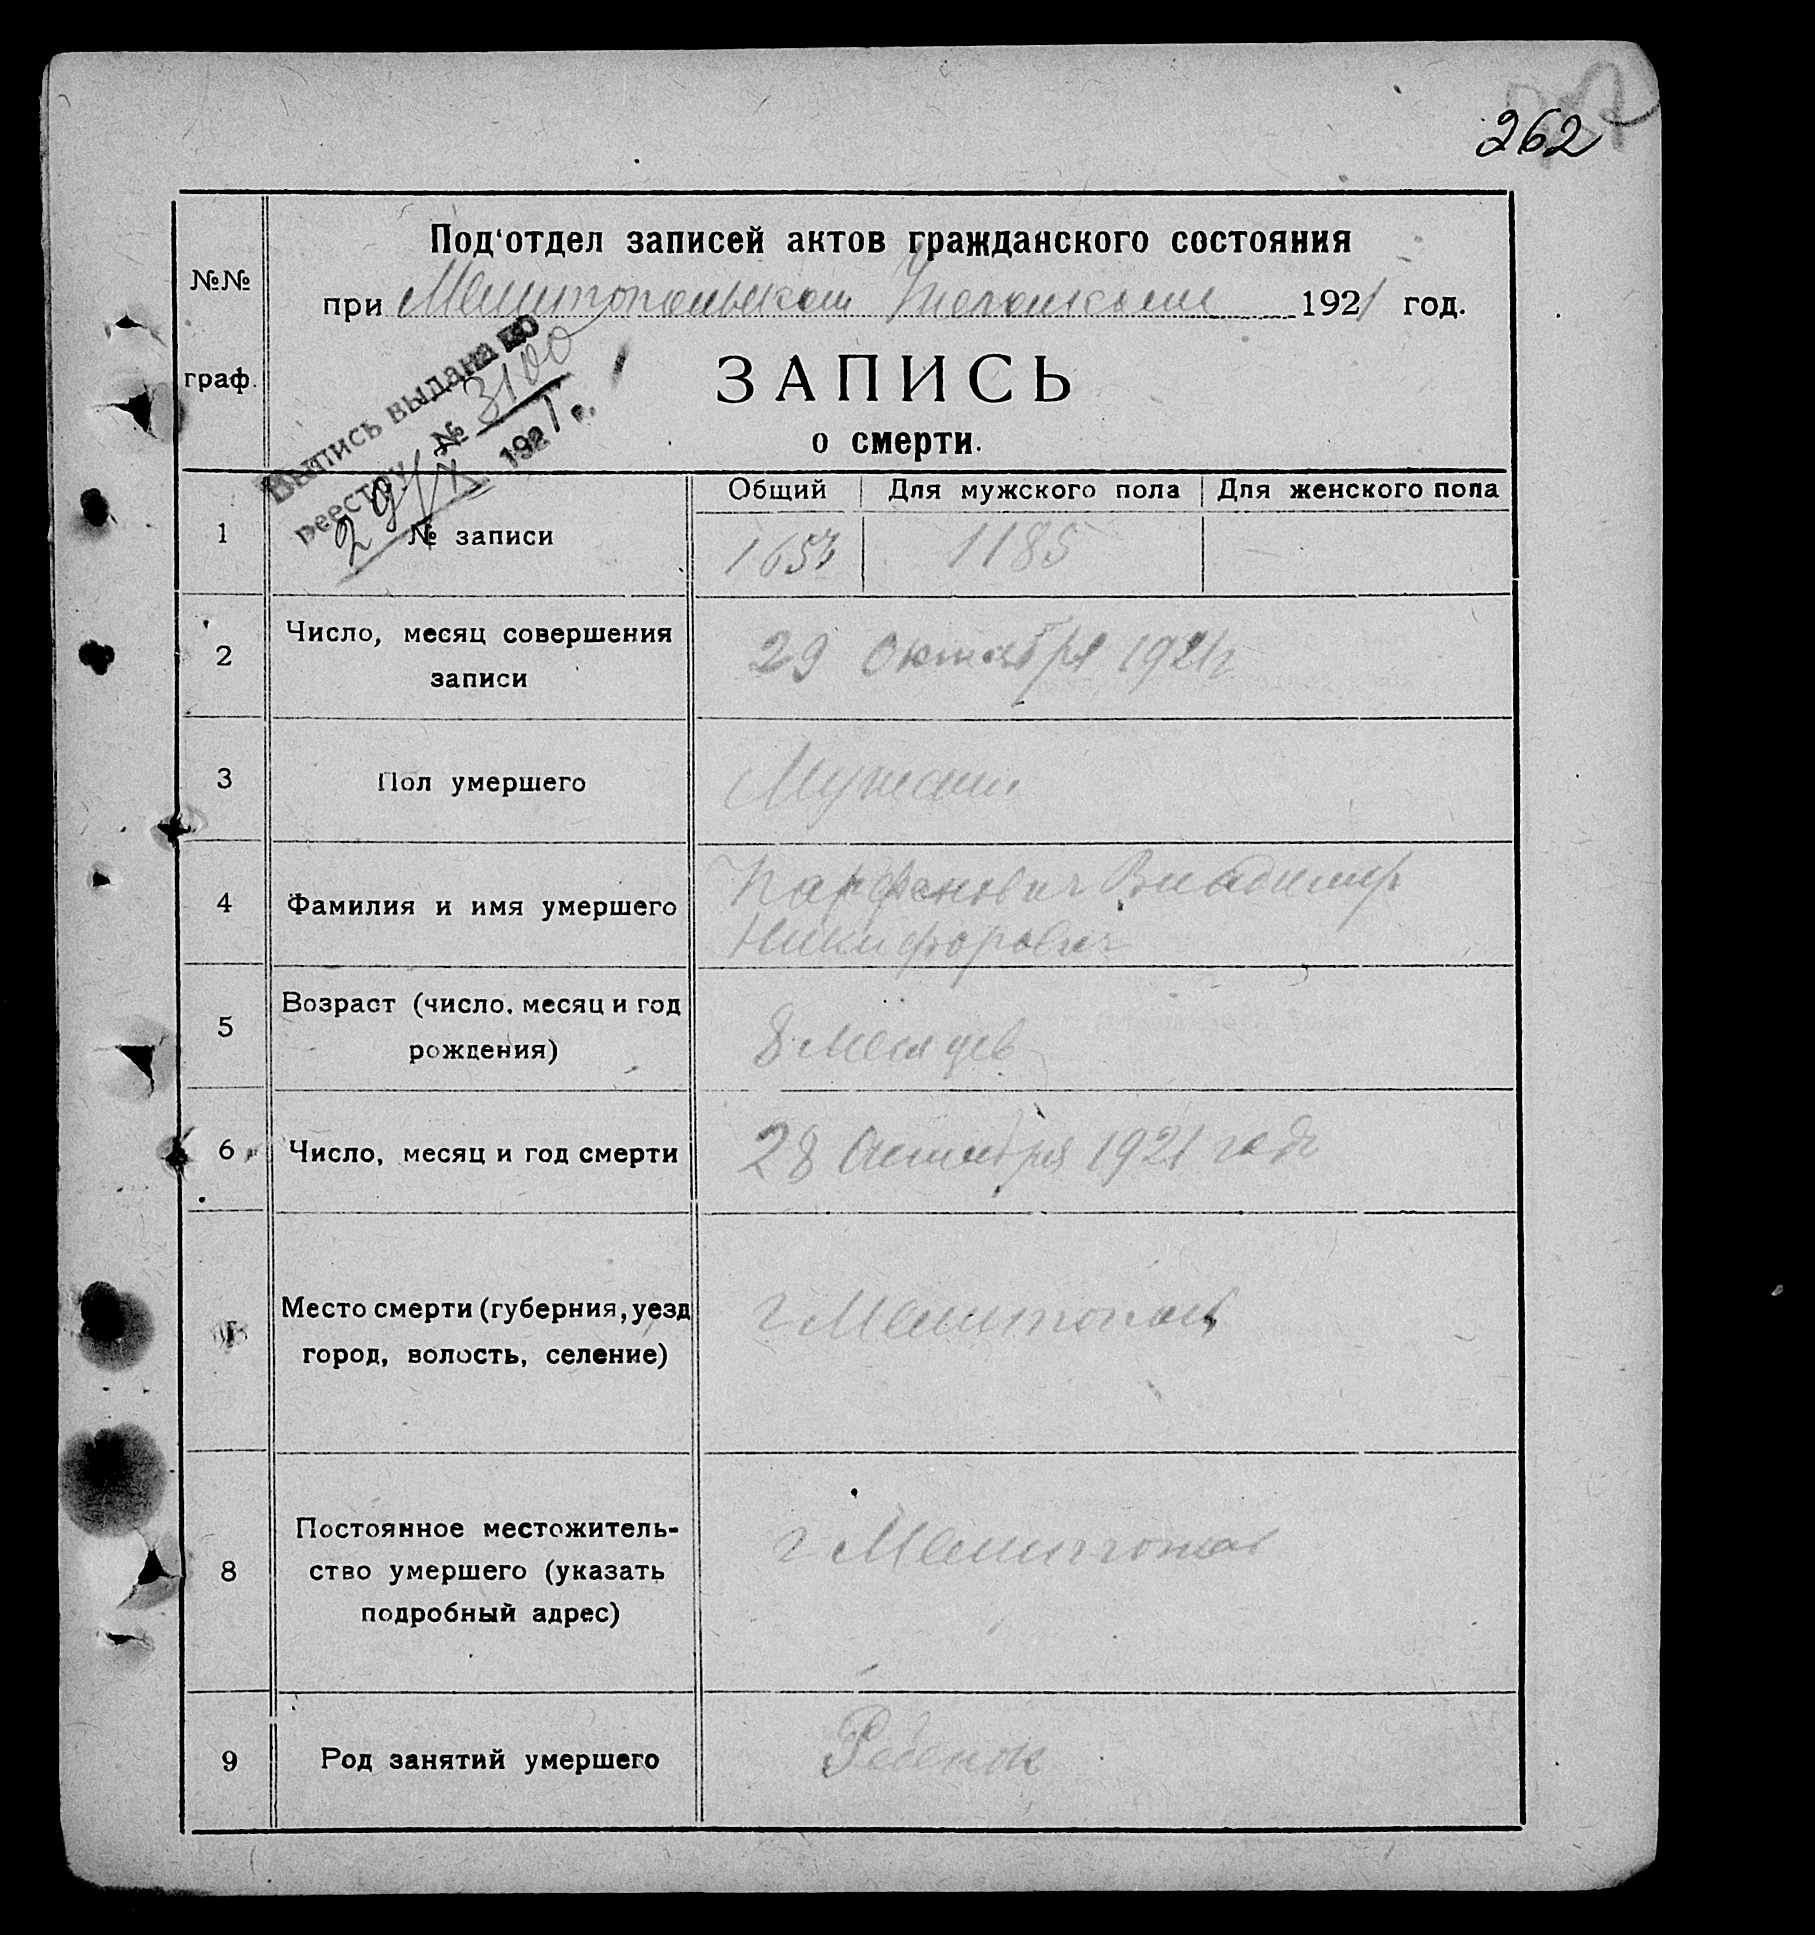 262
Под‘отдел записей актов гражданского состояния
№№ граф.
при Мелитопольском 1921 год.
ЗАПИСЬ
о смерти.
Выпись выдана по
реестру № 3100
29/X 1921 г.
Общий Для мужского пола Для женского пола
1 № записи 1653 1185 —
2 Число, месяц совершения
записи
29 октября 1921 г
3 Пол умершего Мужской
4 Фамилия и имя умершего
Владимир
Никифорович
5 Возраст (число, месяц и год
рождения)
8 месяцев
6 Число, месяц и год смерти 28 октября 1921 года
Место смерти (губерния, уезд
город, волость, селение)
г Мелитополь
8 Постоянное местожитель-
ство умершего (указать
подробный адрес)
г Мелитополь
9 Род занятий умершего Ребенок